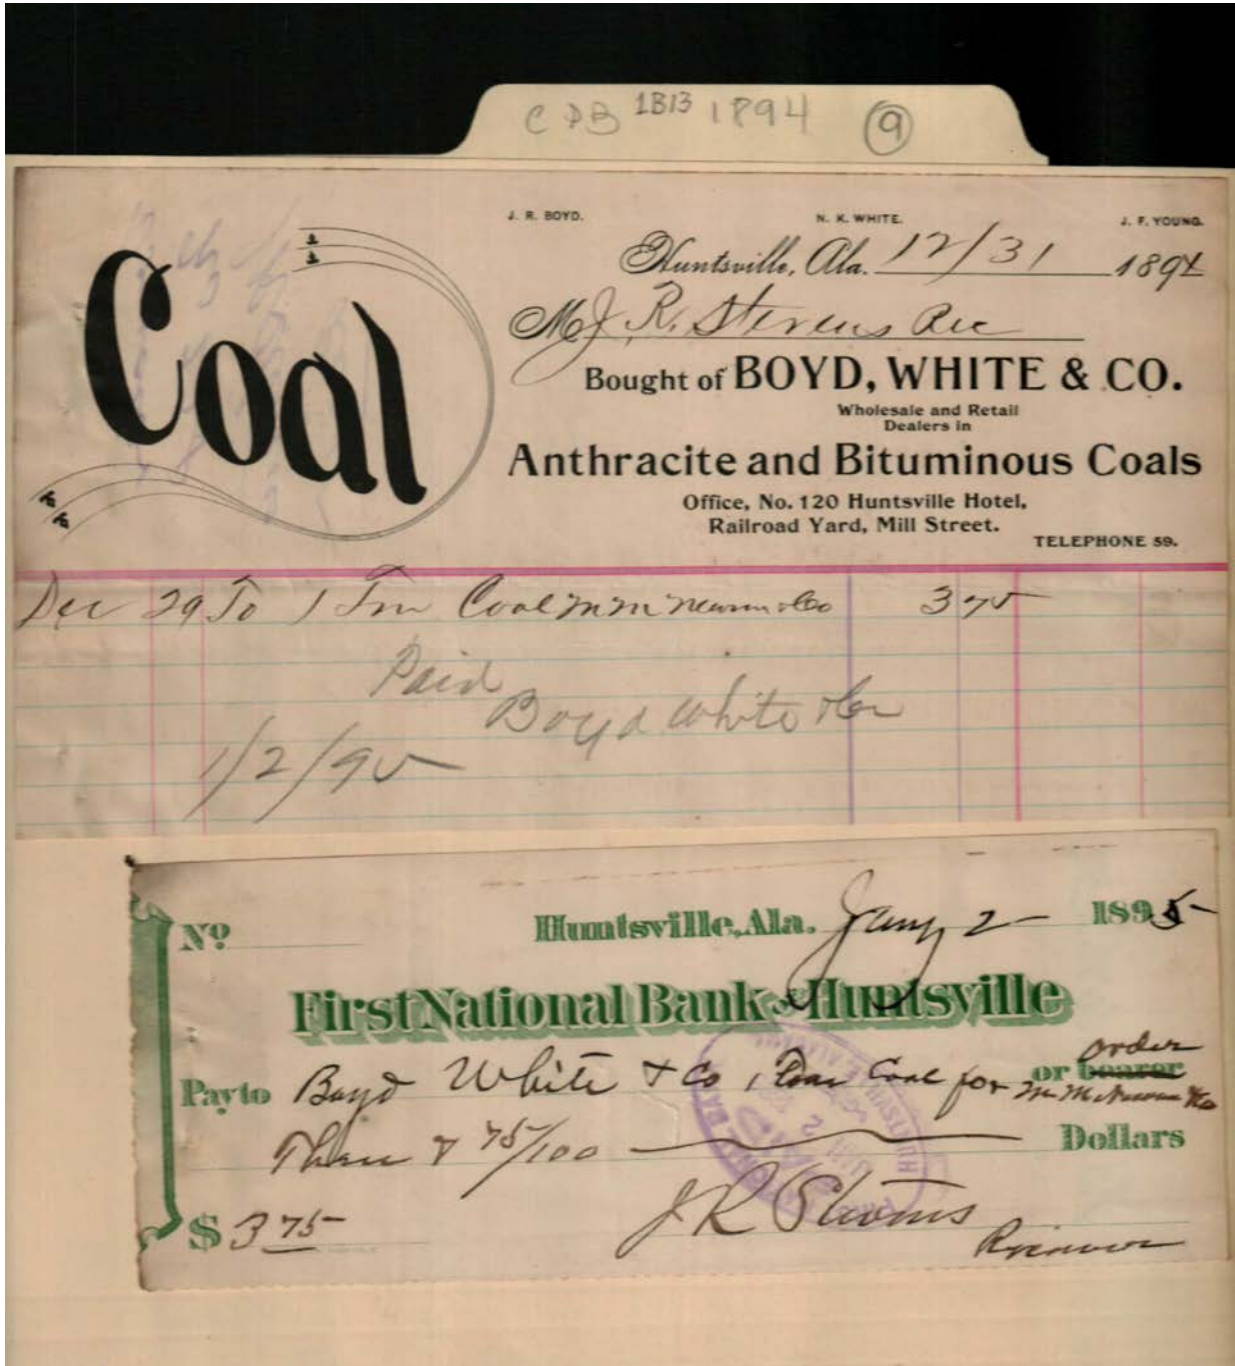 CDB 1B13 1894 9
J. R. BOYD. N. K. WHITE. J. F. YOUNG.
Huntsville, Ala. 12/31 1894
Coal
M J. R. Stevens Rec
Bought of BOYD, WHITE & CO.
Wholesale and Retail
Dealers in
Anthracite and Bituminous Coals
Office, No. 120 Huntsville Hotel,
Railroad Yard, Mill Street.
TELEPHONE 59.
Dec 29 To 1 Ton Coal M M & Co 3 75
Paid
Boyd White & Co
1/2/95
No Huntsville, Ala. Jany 2 - 1895
First National Bank of Huntsville
order
Pay to Boyd White & Co 1 Ton Coal for or bearer
M M & Co
Three & 75/100 Dollars
$ 3 75
J R Stevens
Receiver